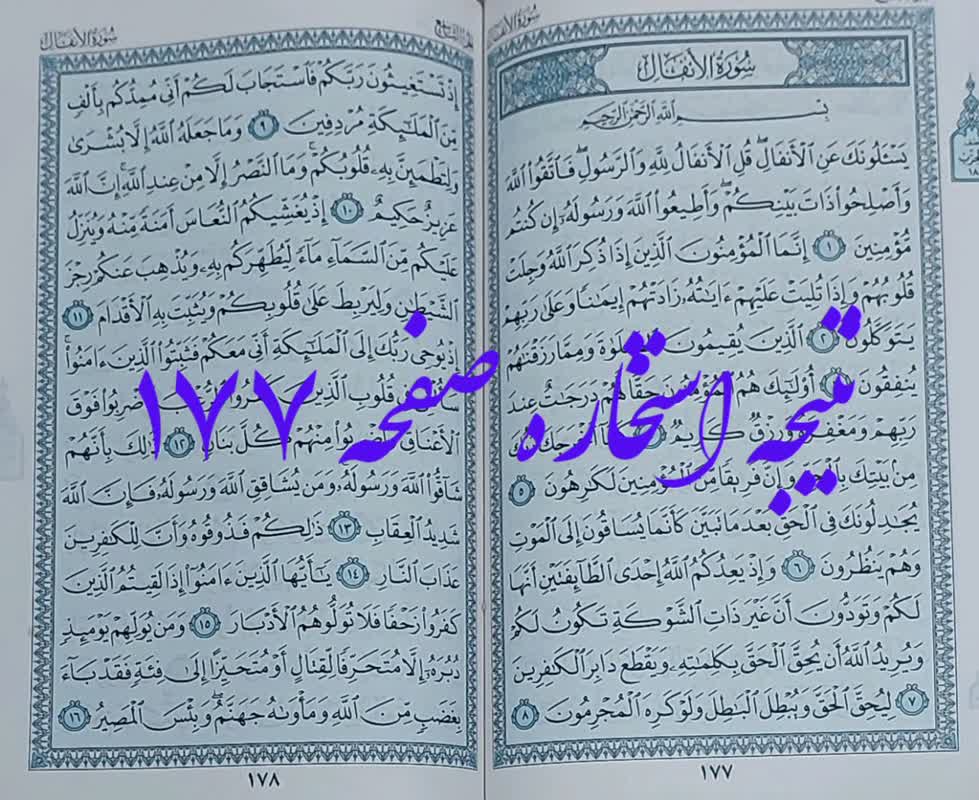 سُورَةُ الأَنفَال
سُورَةُ الأَنفَالِ
بِسْمِ اللَّهِ الرَّحْمَٰنِ الرَّحِيمِ
يَسْـَٔلُونَكَ عَنِ ٱلْأَنفَالِ ۖ قُلِ ٱلْأَنفَالُ لِلَّهِ وَٱلرَّسُولِ ۖ فَٱتَّقُوا۟ ٱللَّهَ
وَأَصْلِحُوا۟ ذَاتَ بَيْنِكُمْ ۖ وَأَطِيعُوا۟ ٱللَّهَ وَرَسُولَهُۥٓ إِن كُنتُم
مُّؤْمِنِينَ ١ إِنَّمَا ٱلْمُؤْمِنُونَ ٱلَّذِينَ إِذَا ذُكِرَ ٱللَّهُ وَجِلَتْ
قُلُوبُهُمْ وَإِذَا تُلِيَتْ عَلَيْهِمْ ءَايَٰتُهُۥ زَادَتْهُمْ إِيمَٰنًا وَعَلَىٰ رَبِّهِمْ
يَتَوَكَّلُونَ ٢ ٱلَّذِينَ يُقِيمُونَ ٱلصَّلَوٰةَ وَمِمَّا رَزَقْنَٰهُمْ
يُنفِقُونَ أُو۟لَٰٓئِكَ هُمُ ٱلْمُؤْمِنُونَ حَقًّا ۚ لَّهُمْ دَرَجَٰتٌ عِندَ
رَبِّهِمْ وَمَغْفِرَةٌ وَرِزْقٌ كَرِيمٌ كَمَآ أَخْرَجَكَ رَبُّكَ
مِنۢ بَيْتِكَ بِٱلْحَقِّ وَإِنَّ فَرِيقًا مِّنَ ٱلْمُؤْمِنِينَ لَكَٰرِهُونَ ٥
يُجَٰدِلُونَكَ فِى ٱلْحَقِّ بَعْدَ مَا تَبَيَّنَ كَأَنَّمَا يُسَاقُونَ إِلَى ٱلْمَوْتِ
وَهُمْ يَنظُرُونَ ٦ وَإِذْ يَعِدُكُمُ ٱللَّهُ إِحْدَى ٱلطَّآئِفَتَيْنِ أَنَّهَا
لَكُمْ وَتَوَدُّونَ أَنَّ غَيْرَ ذَاتِ ٱلشَّوْكَةِ تَكُونُ لَكُمْ
وَيُرِيدُ ٱللَّهُ أَن يُحِقَّ ٱلْحَقَّ بِكَلِمَٰتِهِۦ وَيَقْطَعَ دَابِرَ ٱلْكَٰفِرِينَ
٧ لِيُحِقَّ ٱلْحَقَّ وَيُبْطِلَ ٱلْبَٰطِلَ وَلَوْ كَرِهَ ٱلْمُجْرِمُونَ ٨
١٧٧
سُورَةُ الأَنفَال
إِذْ تَسْتَغِيثُونَ رَبَّكُمْ فَٱسْتَجَابَ لَكُمْ أَنِّى مُمِدُّكُم بِأَلْفٍ
مِّنَ ٱلْمَلَٰٓئِكَةِ مُرْدِفِينَ ٩ وَمَا جَعَلَهُ ٱللَّهُ إِلَّا بُشْرَىٰ
وَلِتَطْمَئِنَّ بِهِۦ قُلُوبُكُمْ ۚ وَمَا ٱلنَّصْرُ إِلَّا مِنْ عِندِ ٱللَّهِ ۚ إِنَّ ٱللَّهَ
عَزِيزٌ حَكِيمٌ ١٠ إِذْ يُغَشِّيكُمُ ٱلنُّعَاسَ أَمَنَةً مِّنْهُ وَيُنَزِّلُ
عَلَيْكُم مِّنَ ٱلسَّمَآءِ مَآءً لِّيُطَهِّرَكُم بِهِۦ وَيُذْهِبَ عَنكُمْ رِجْزَ
ٱلشَّيْطَٰنِ وَلِيَرْبِطَ عَلَىٰ قُلُوبِكُمْ وَيُثَبِّتَ بِهِ ٱلْأَقْدَامَ ١١
إِذْ يُوحِى رَبُّكَ إِلَى ٱلْمَلَٰٓئِكَةِ أَنِّى مَعَكُمْ فَثَبِّتُوا۟ ٱلَّذِينَ ءَامَنُوا۟ ۚ
سَأُلْقِى فِى قُلُوبِ ٱلَّذِينَ كَفَرُوا۟ ٱلرُّعْبَ فَٱضْرِبُوا۟ فَوْقَ
ٱلْأَعْنَاقِ وَٱضْرِبُوا۟ مِنْهُمْ كُلَّ بَنَانٍ ١٢ ذَٰلِكَ بِأَنَّهُمْ
شَآقُّوا۟ ٱللَّهَ وَرَسُولَهُۥ ۚ وَمَن يُشَاقِقِ ٱللَّهَ وَرَسُولَهُۥ فَإِنَّ ٱللَّهَ
شَدِيدُ ٱلْعِقَابِ ١٣ ذَٰلِكُمْ فَذُوقُوهُ وَأَنَّ لِلْكَٰفِرِينَ
عَذَابَ ٱلنَّارِ ١٤ يَٰٓأَيُّهَا ٱلَّذِينَ ءَامَنُوٓا۟ إِذَا لَقِيتُمُ ٱلَّذِينَ
كَفَرُوا۟ زَحْفًا فَلَا تُوَلُّوهُمُ ٱلْأَدْبَارَ ١٥ وَمَن يُوَلِّهِمْ يَوْمَئِذٍ
دُبُرَهُۥٓ إِلَّا مُتَحَرِّفًا لِّقِتَالٍ أَوْ مُتَحَيِّزًا إِلَىٰ فِئَةٍ فَقَدْ بَآءَ
بِغَضَبٍ مِّنَ ٱللَّهِ وَمَأْوَىٰهُ جَهَنَّمُ ۖ وَبِئْسَ ٱلْمَصِيرُ ١٦
١٧٨
نتیجه استخاره صفحه ۱۷۷